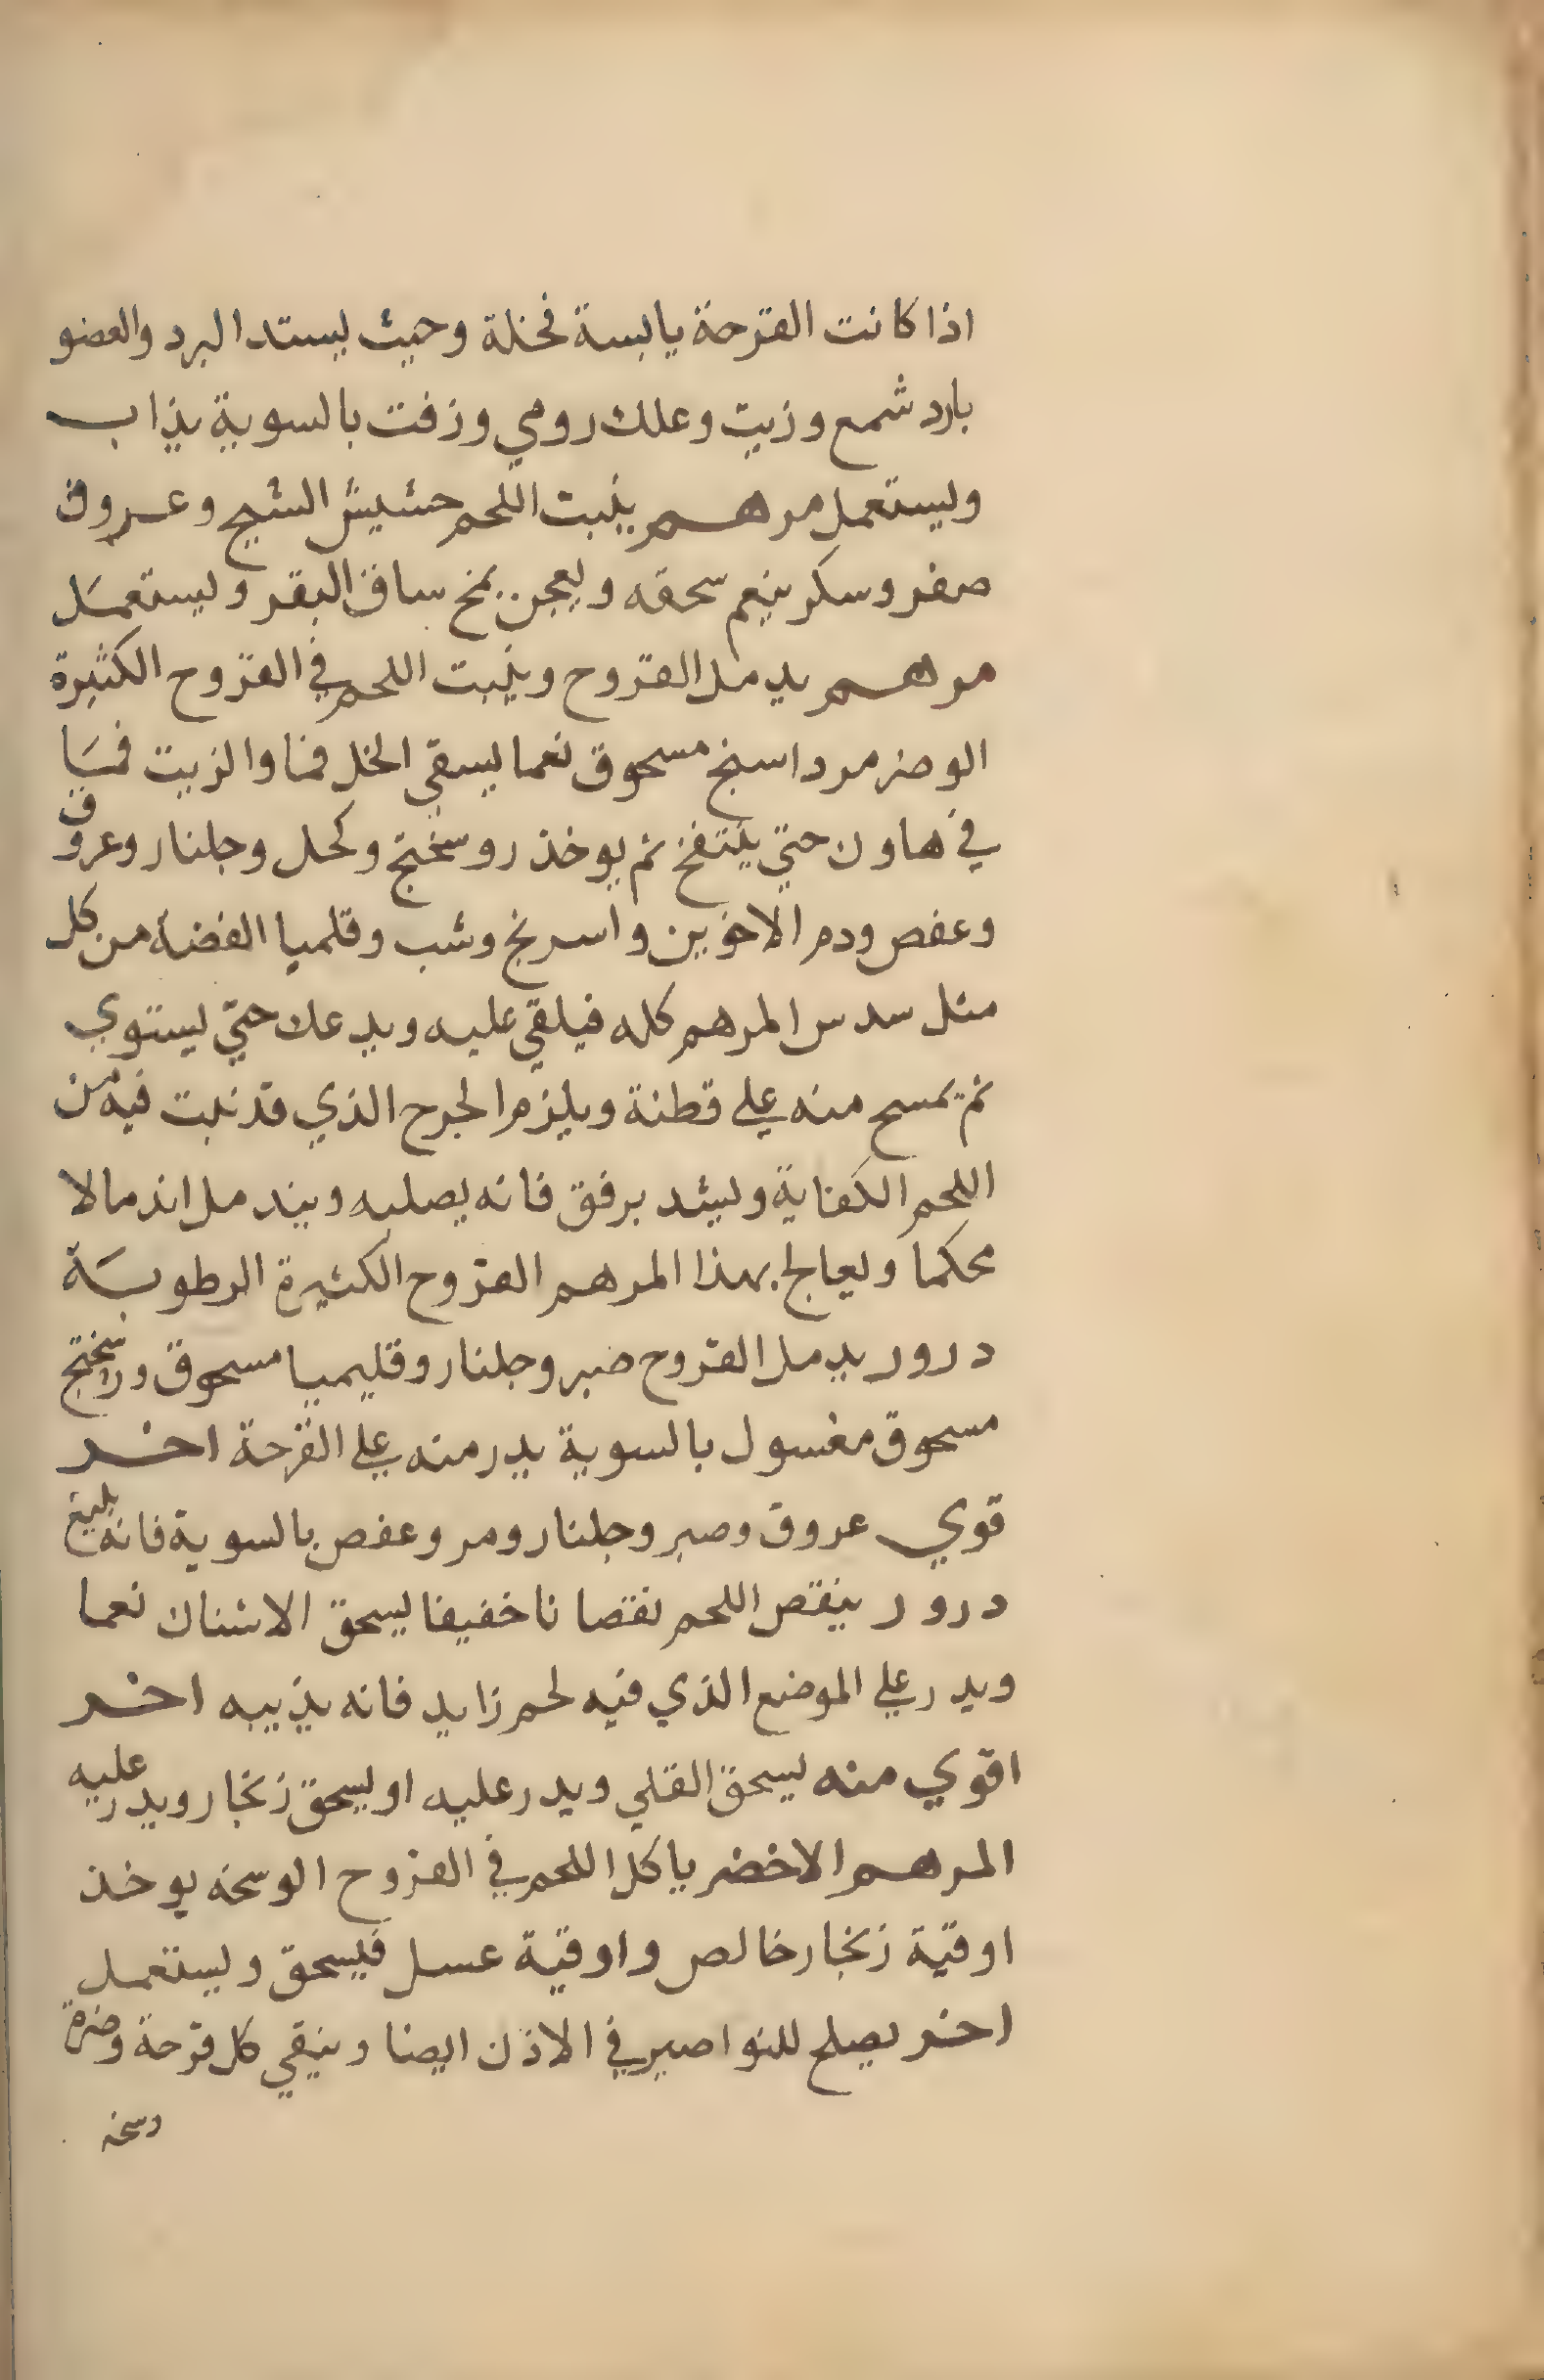 اذا كانت القرحة يابسة قحلة وحيث يستد البرد والعضو
بارد شمع وزيت وعلك رومي وزفت بالسوية يذاب
ويستعمل مرهم ينبت اللحم حشيش الشيح وعروق
صفر وسكر ينعم سحقه ويعجن بمخ ساق البقر ويستعمل
مرهم يدمل القروح وينبت اللحم في القروح الكثيرة
الوضر مرداسنج مسحوق نعما يسقي الخل فنا والزيت فنيا
في هاون حتي ينتفخ ثم يوخذ روسختج وكحل وجلنار وعروق
وعفص ودم الاخوين واسرنج وشب وقلميا الفضة من كل
مثل سدس المرهم كله فيلقي عليه ويدعك حتي يستوي
ثم يمسح منه علي قطنة ويلزم الجرح الذي قد نبت فيه من
اللحم الكفاية وليشد برفق فانه يصلبه ويندمل اندمالا
محكما ويعالج بهذا المرهم القروح الكثيرة الرطوبة
درور يدمل القروح صبر وجلنار وقليميا مسحوق وراسختج
مسحوق مغسول بالسوية يدر منه علي القرحة اخر
قوي عروق وصبر وجلنار ومر وعفص بالسوية فانه بليغ
درور ينقص اللحم نقصانا خفيفا يسحق الاشنان نعما
ويدر علي الموضع الذي فيه لحم زايد فانه يذيبه اخر
اقوي منه يسحق القلي ويدر عليه او يسحق زنجار ويدر عليه
المرهم الاخضر ياكل اللحم في القروح الوسخه يوخذ
اوقية زنجار خالص واوقية عسل فيسحق ويستعمل
اخر يصلح للنواصير في الاذن ايضا وينقي كل قرحة وضرة
وسخه